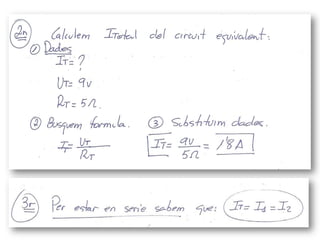 2n Calculem ITotal del circuit equivalent:
① Dades
IT= ?
UT= 9V
RT= 5Ω.
② Busquem formula. ③ Substituim dades.
IT= UT/RT IT= 9V/5Ω = 1'8A
3r Per estar en serie sabem que: IT= I1 = I2